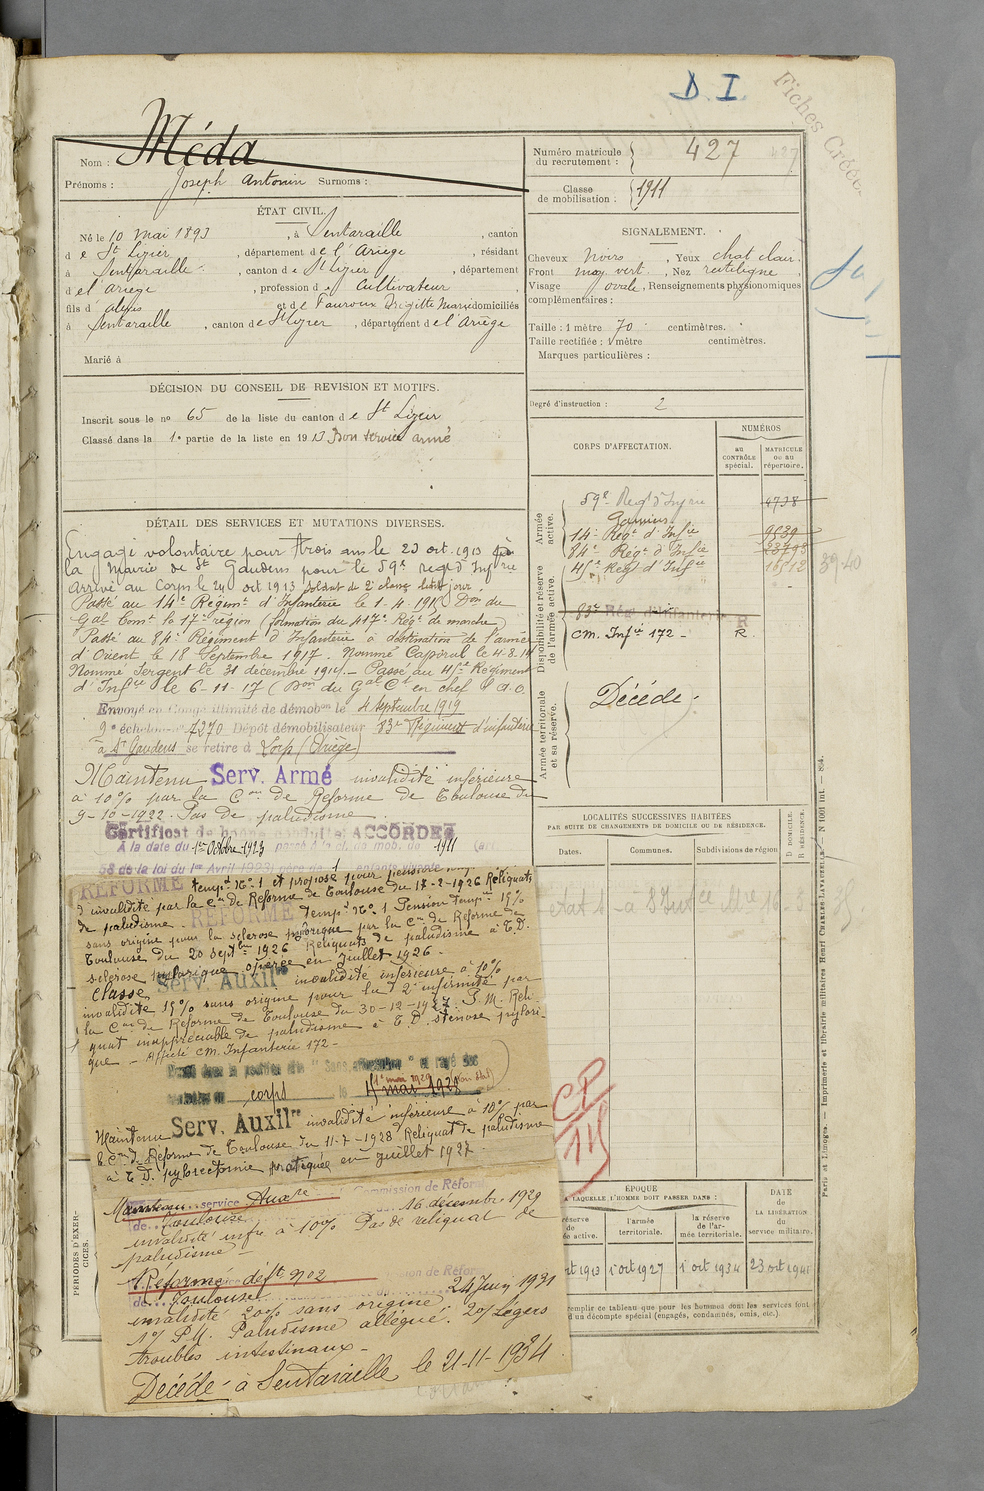 D. I.
Fiches Créées
Nom : Méda
Prénoms : Joseph Antonin Surnoms :
Numéro matricule du recrutement : 427
Classe de mobilisation : 1911
ÉTAT CIVIL.
Né le 10 mai 1893, à Sentaraille, canton
de St Lizier, département de l'Ariège, résidant
à Sentaraille, canton de St Lizier, département
de l'Ariège, profession de Cultivateur
fils d' Alexis et de Fauroux Brigitte Marie domiciliés
à Sentaraille, canton de St Lizier, département de l'Ariège
Marié à
SIGNALEMENT.
Cheveux Noirs, Yeux chat clair.
Front moy. vert., Nez rectiligne
Visage ovale, Renseignements physionomiques
complémentaires :
Taille : 1 mètre 70 centimètres.
Taille rectifiée : 1 mètre centimètres.
Marques particulières :
Degré d'instruction : 2
DÉCISION DU CONSEIL DE REVISION ET MOTIFS.
Inscrit sous le no 65 de la liste du canton de St Lizier
Classé dans la 1e partie de la liste en 1913 Bon service armé
CORPS D'AFFECTATION.
NUMÉROS
AU CONTRÔLE spécial.
MATRICULE OU AU répertoire.
Armée active.
59e Regt d'Infrie 4738
14e Regt d'Infie 9539
84e Regt d'Infie 23793
45e Regt d'Infie 16512
Disponibilité et réserve de l'armée active.
83e Rég. d'Infanterie R
CM. Infie 172 - R.
Armée territoriale et sa réserve.
Décédé.
DÉTAIL DES SERVICES ET MUTATIONS DIVERSES.
Engagé volontaire pour trois ans le 23 oct. 1913 à
la Mairie de St Gaudens pour le 59e regt d'Infrie
Arrivé au Corps le 24 oct 1913 soldat de 2e classe ledit jour
Passé au 14e Régimt d'Infanterie le 1-4-1915 Don du
Gal Comt la 17e région (formation du 417e Régt de marche)
Passé au 84e Régiment d'Infanterie à destination de l'armée
d'Orient le 18 Septembre 1917. Nommé Caporal le 4-8-14
Nommé Sergent le 31 décembre 1914. - Passé au 45e Régiment
d'Infie le 6-11-17 (Don du Gal Ct en chef A.O.
Envoyé en Congé illimité de démobon le 4 Septembre 1919
9e échelon no 7270 Dépôt démobilisateur 83e Régiment d'infanterie
à St Gaudens se retire à Lorp (Ariège)
Maintenu Serv. Armé invalidité inférieure
à 10% par la Con de Reforme de Toulouse du
9-10-1922. Pas de paludisme
Certificat de bonne conduite ACCORDÉ
À la date du 1er Octobre 1923 passé à la cl. de mob. de 1911 (art.
58 de la loi du 1er Avril 1923) père de 1 enfants vivants
RÉFORMÉ tempre No 1 et proposé pour pension
d'invalidité par la Con de Reforme de Toulouse du 17-2-1926 Reliquats
de paludisme. RÉFORMÉ tempre No 1 Pension tempre 15%
sans origine pour la sclerose pylorique par la Con de Reforme de
Toulouse du 20 septbre 1926 Reliquats de paludisme à E.D.
sclerose pylorique opérée en juillet 1926.
Classé Serv. Auxilre invalidité inférieure à 10%
invalidité 15% sans origine pour la 2e infirmité par
la Con de Reforme de Toulouse du 30-12-1927. P.M. Reli-
quat inappréciable de paludisme à E.D. sténose pylori-
que - Affecté CM. Infanterie 172 -
Passé dans la position dite "Sans affectation" et rayé des
corps le 15 mai 1928
Maintenu Serv. Auxilre invalidité inférieure à 10% par
la Con de Reforme de Toulouse du 11-7-1928 Reliquat de paludisme
à E.D. pylorectomie pratiquée en juillet 1927
Maintenu service Auxre Commission de Réforme
de Toulouse du 16 décembre 1929
invalidité infre à 10% Pas de reliquat de
paludisme
Réformé déft no 2 Commission de Réforme
de Toulouse 24 Juin 1931
invalidité 20% sans origine.
1o/ P.M. Paludisme allégué. 2o/ Légers
troubles intestinaux -
Décédé à Sentaraille le 21-11-1934.
LOCALITÉS SUCCESSIVES HABITÉES
PAR SUITE DE CHANGEMENTS DE DOMICILE OU DE RÉSIDENCE.
Dates.
Communes.
Subdivisions de région
D DOMICILE.
R RÉSIDENCE.
PÉRIODES D'EXERCICES.
ÉPOQUE
À LAQUELLE L'HOMME DOIT PASSER DANS :
l'armée territoriale.
la réserve de l'armée territoriale.
DATE de LA LIBÉRATION du service militaire.
oct 1913
1 oct 1927
1 oct 1934
23 oct 1941
remplir ce tableau que pour les hommes dont les services font
d'un décompte spécial (engagés, condamnés, omis, etc.).
Paris et Limoges. — Imprimerie et librairie militaires Henri CHARLES-LAVAUZELLE.